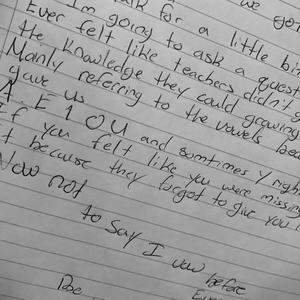 talk for a little bit we
I'm going to ask a quest
Ever felt like teachers didn't g
the knowledge they could growing
Mainly referring to the vowels bec
gave us
A. E I O U and somtimes y righ
If you felt like you were missing
t because they forgot to give you
Now not
to say I vow before